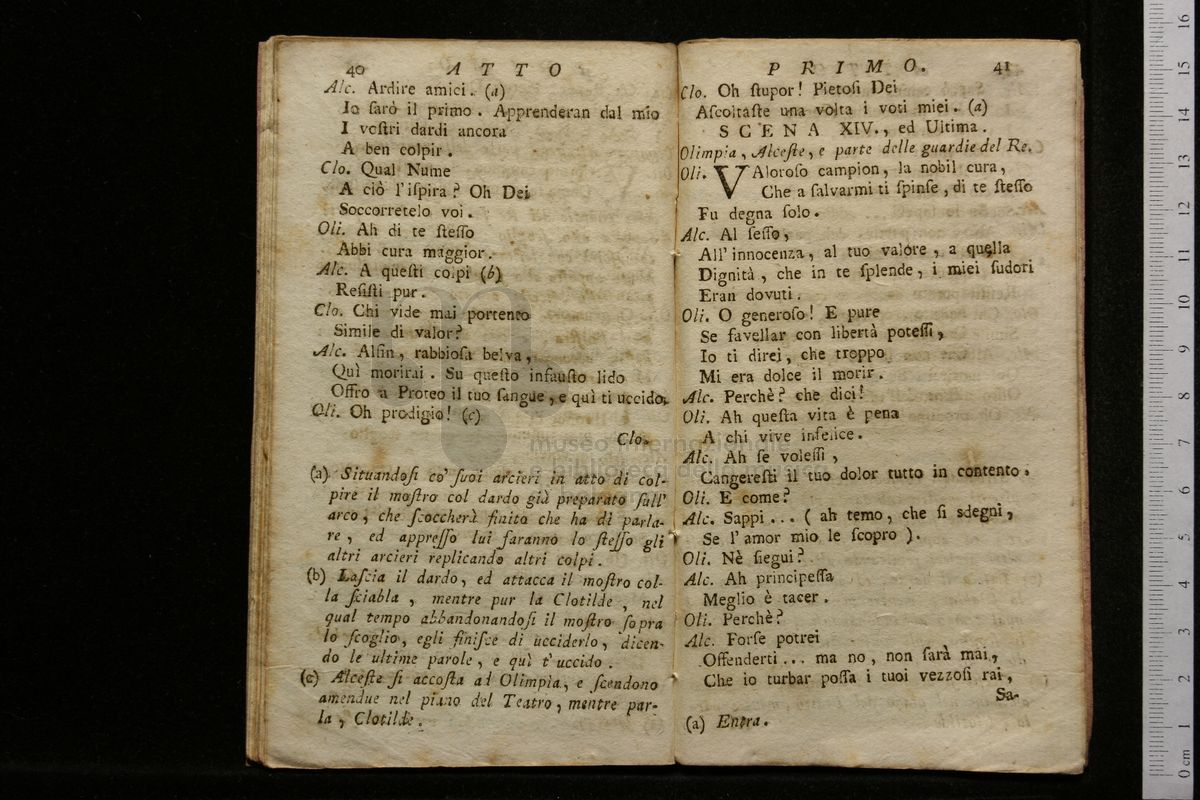 40 ATTO
Alc. Ardire amici. (a)
Io ſarò il primo. Apprenderan dal mio
I voſtri dardi ancora
A ben colpir.
Clo. Qual Nume
A ciò l'iſpira? Oh Dei
Soccorretelo voi.
Oli. Ah di te ſteſſo
Abbi cura maggior.
Alc. A queſti colpi (b)
Reſiſti pur.
Clo. Chi vide mai portento
Simile di valor?
Alc. Alfin, rabbioſa belva,
Quì morirai. Su queſto infauſto lido
Offro a Proteo il tuo ſangue, e quì ti uccido.
Oli. Oh prodigio! (c)
Clo.
(a) Situandoſi co' ſuoi arcieri in atto di col-
pire il moſtro col dardo già preparato ſull'
arco, che ſcoccherà finito che ha di parla-
re, ed appreſſo lui faranno lo ſteſſo gli
altri arcieri replicando altri colpi.
(b) Laſcia il dardo, ed attacca il moſtro col-
la ſciabla, mentre pur la Clotilde, nel
qual tempo abbandonandoſi il moſtro ſopra
lo ſcoglio, egli finiſce di ucciderlo, dicen-
do le ultime parole, e quì t'uccido.
(c) Alceſte ſi accoſta ad Olimpia, e ſcendono
amendue nel piano del Teatro, mentre par-
la, Clotilde.
PRIMO. 41
Clo. Oh ſtupor! Pietoſi Dei
Aſcoltaſte una volta i voti miei. (a)
SCENA XIV., ed Ultima.
Olimpia, Alceſte, e parte delle guardie del Re.
Oli. VAloroſo campion, la nobil cura,
Che a ſalvarmi ti ſpinſe, di te ſteſſo
Fu degna ſolo.
Alc. Al ſeſſo,
All'innocenza, al tuo valore, a quella
Dignità, che in te ſplende, i miei ſudori
Eran dovuti.
Oli. O generoſo! E pure
Se favellar con libertà poteſſi,
Io ti direi, che troppo
Mi era dolce il morir.
Alc. Perchè? che dici!
Oli. Ah queſta vita è pena
A chi vive infelice.
Alc. Ah ſe voleſſi,
Cangereſti il tuo dolor tutto in contento.
Oli. E come?
Alc. Sappi... (ah temo, che ſi sdegni,
Se l'amor mio le ſcopro).
Oli. Nè ſiegui?
Alc. Ah principeſſa
Meglio è tacer.
Oli. Perchè?
Alc. Forſe potrei
Offenderti... ma no, non ſarà mai,
Che io turbar poſſa i tuoi vezzoſi rai,
Sa-
(a) Entra.
museo internazionale
e biblioteca della musica
16
15
14
13
12
11
10
9
8
7
6
5
4
3
2
1
0 cm